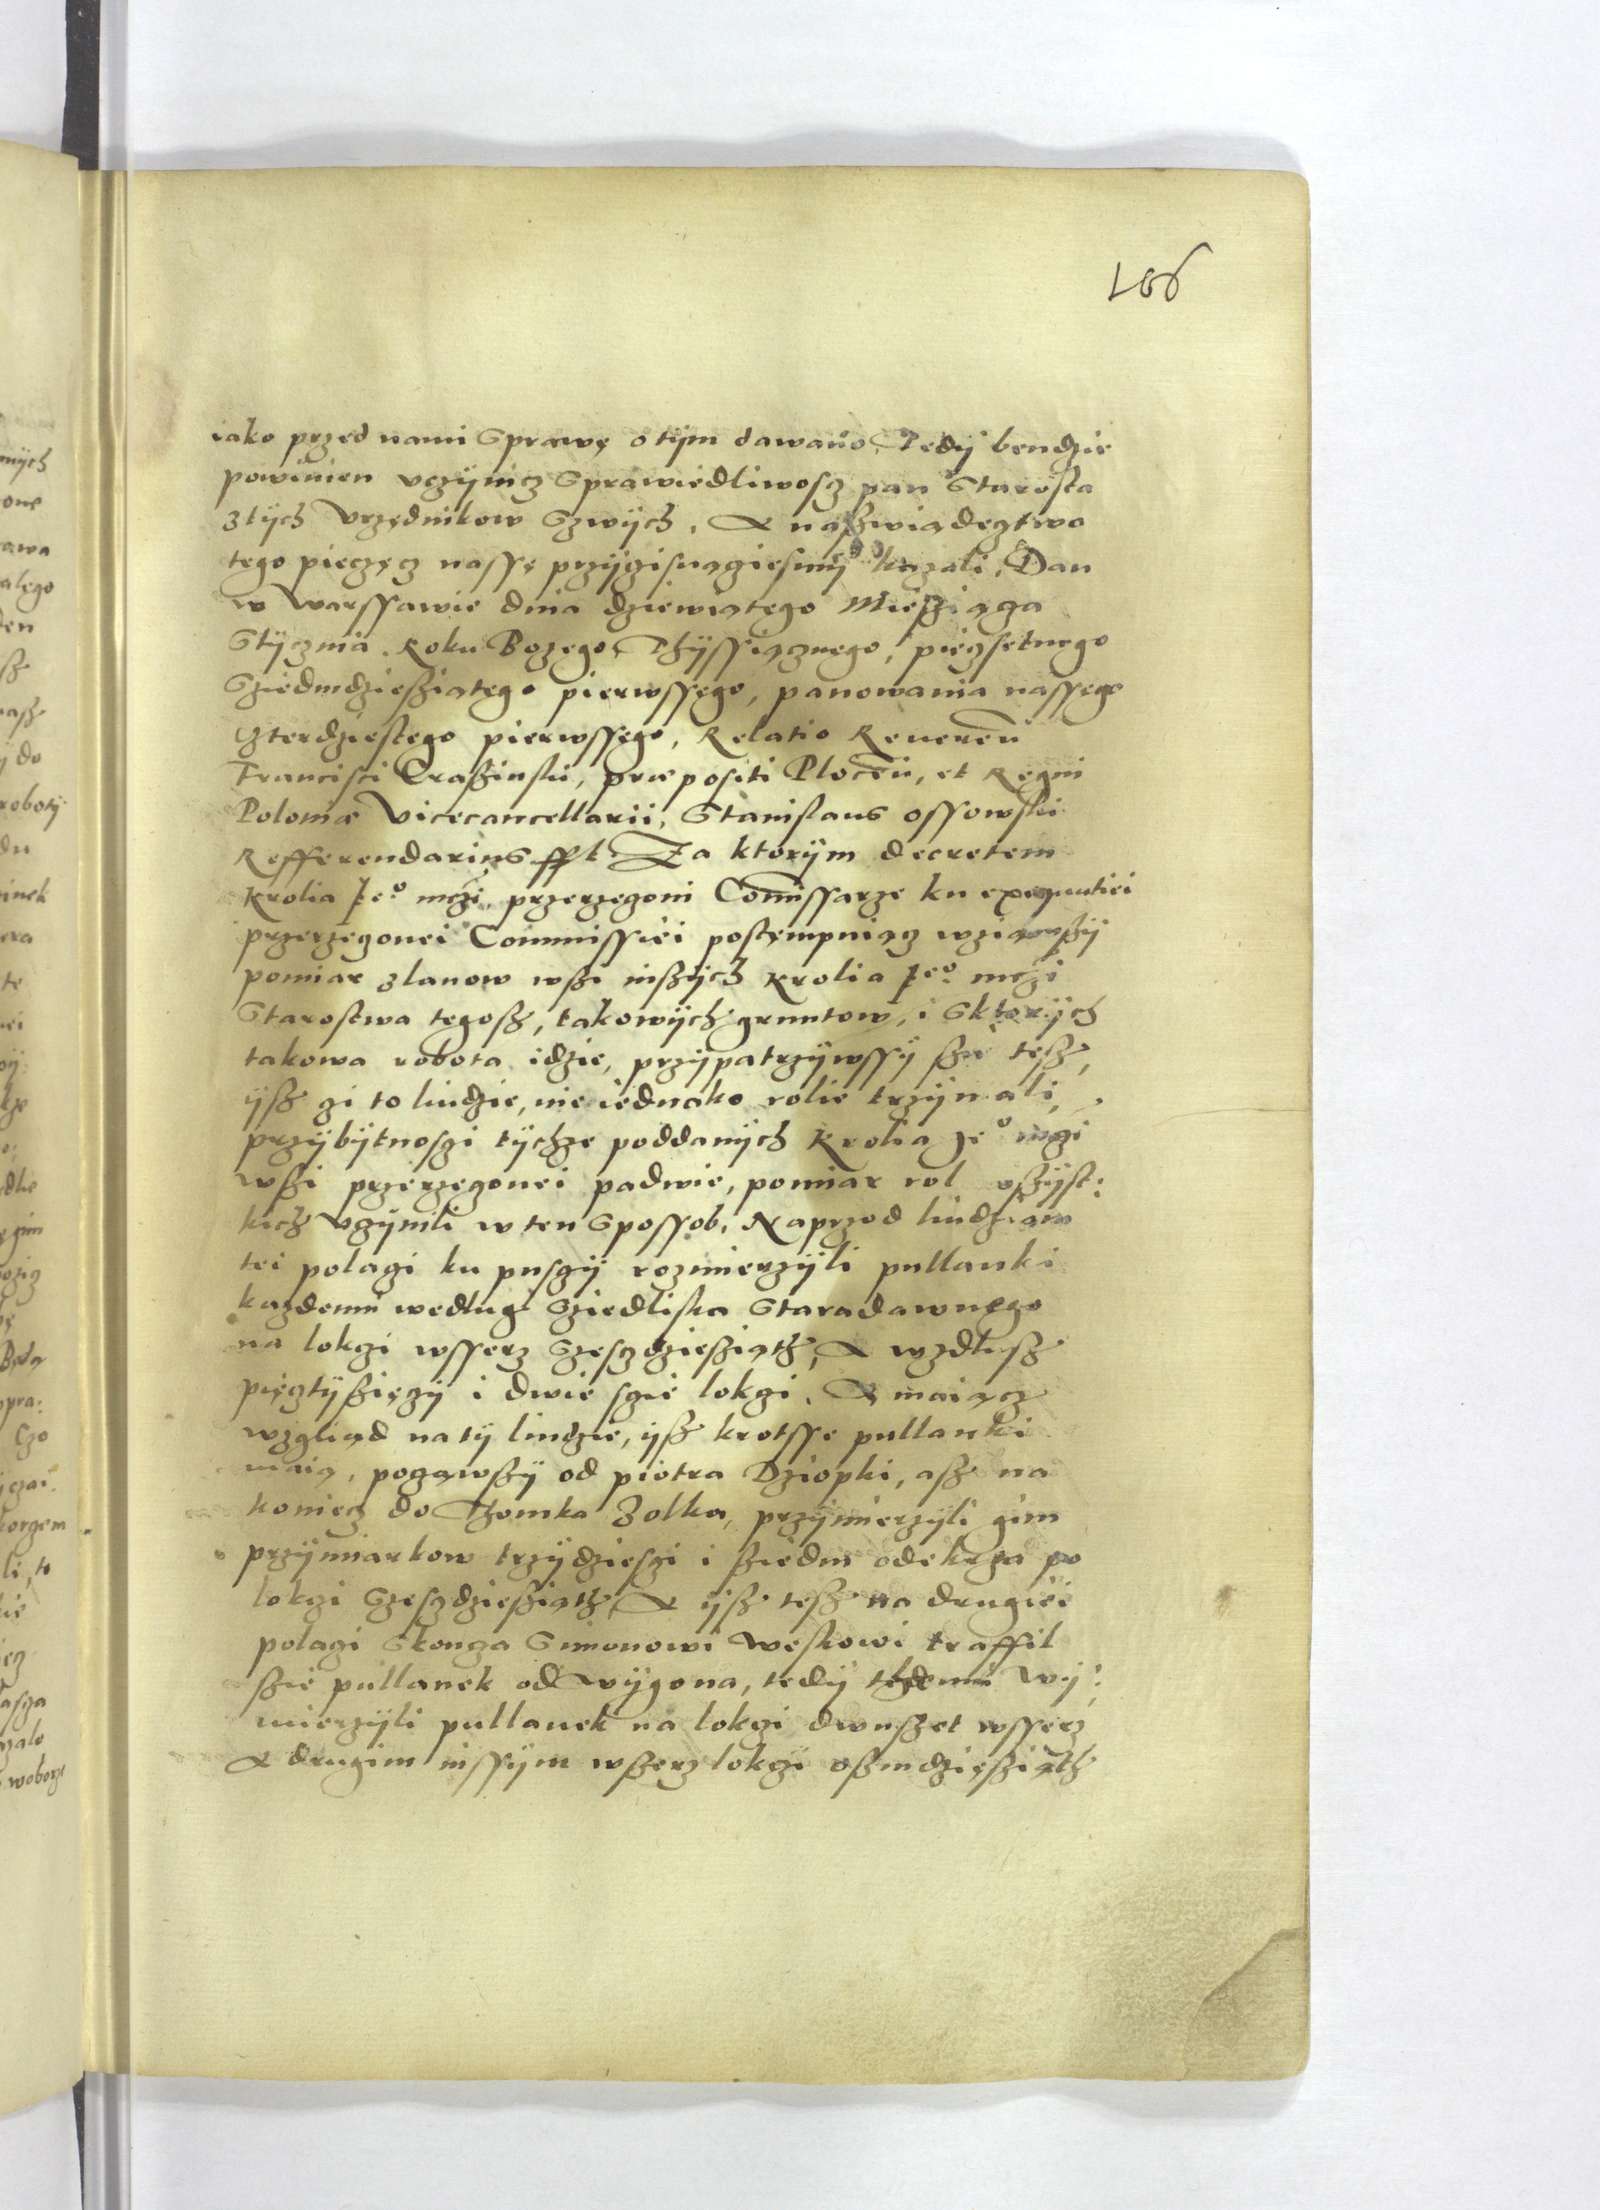 106
iako przed nami Sprawę o tÿm dawano, Tedÿ bendzie
powinien vczÿnicz Sprawiedliwoscz pan Starosta
z tÿch Vrzędnikow Szwÿch, A na szwiądecztwo
tego pieczęcz nassę przÿczisnągiesmÿ kazali, Dan
w Warssawie dnia dziewiątego Miesziącza
Stÿcznia. Roku Bozego Thÿssiącznego, pięczsetnego
Sziedmdziesziątego pierwssego, panowania nassego
Czterdziestego pierwssego, Relatio Reueren
Francisci Crasinski, præpositi Plocen, et Regni
Poloniæ Vicecancellarii, Stanislaus Ossowski
Refferendarius sspt. Za ktorÿm decretem
Krolia Jeº mczi, przerzegoni Comissarze ku exequutiei
przerzegonei Commissiei postęmpuiącz wziąwszÿ
pomiar z lanow wszi inszÿch Krolia Jeº mczi
Starostwa tegosz, takowÿch gruntow, i Sktorÿch
takowa robota idzie, przÿpatrzÿwssÿ szie tesz,
ÿsz gi to liudzie, nie iednako rolie trzÿmali,
przÿbÿtnosczi tÿchze poddanÿch Krolia Jeº mczi
wszi przerzegonei padwie, pomiar rol wszÿst:
kich Vczÿnili w ten Spossob. Naprzod liudziam
tei polagi ku pusczÿ rozmierzÿli pullanki
kazdemu według Sziedliska Staradawnego
na lokczi wsserz Szesczdziesziąth, A wzdlusz
pięcztÿszięczÿ i dwie scie lokczi. A maiącz
wzgliąd na tÿ liudzie, ÿsz krotsse pullanki
maią, pogąwszÿ od piotra Dziopki, asz na
koniecz do Thomka Zolka, przÿmierzÿli gim
przÿmiarkow trzÿdziesczi i sziedm odekrza po
lokczi Szesczdziesziąth, A ÿsz tesz na drugiei
polagi Skoncza Simonowi Weskowi traffil
szie pullanek od wÿgona, tedÿ temu wÿ:
mierzÿli pullanek na lokczi dwuszet wsserz
A drugim inssÿm wszerz lokczi oszmdziesziąth